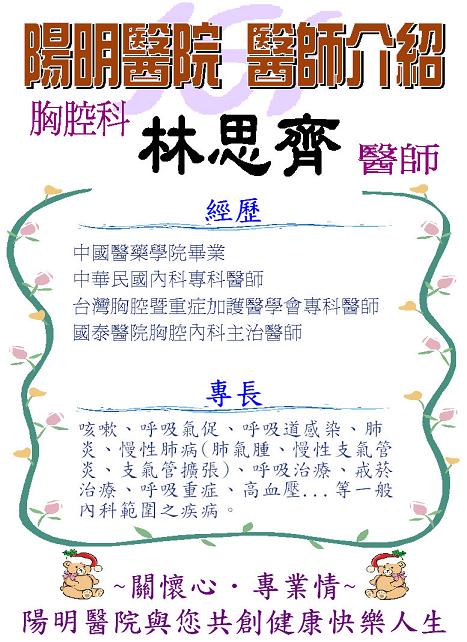 陽明醫院 醫師介紹
胸腔科
林思齊
醫師
經歷
中國醫藥學院畢業
中華民國內科專科醫師
台灣胸腔暨重症加護醫學會專科醫師
國泰醫院胸腔內科主治醫師
專長
咳嗽、呼吸氣促、呼吸道感染、肺
炎、慢性肺病(肺氣腫、慢性支氣管
炎、支氣管擴張)、呼吸治療、戒菸
治療、呼吸重症、高血壓...等一般
內科範圍之疾病。
~關懷心·專業情~
陽明醫院與您共創健康快樂人生